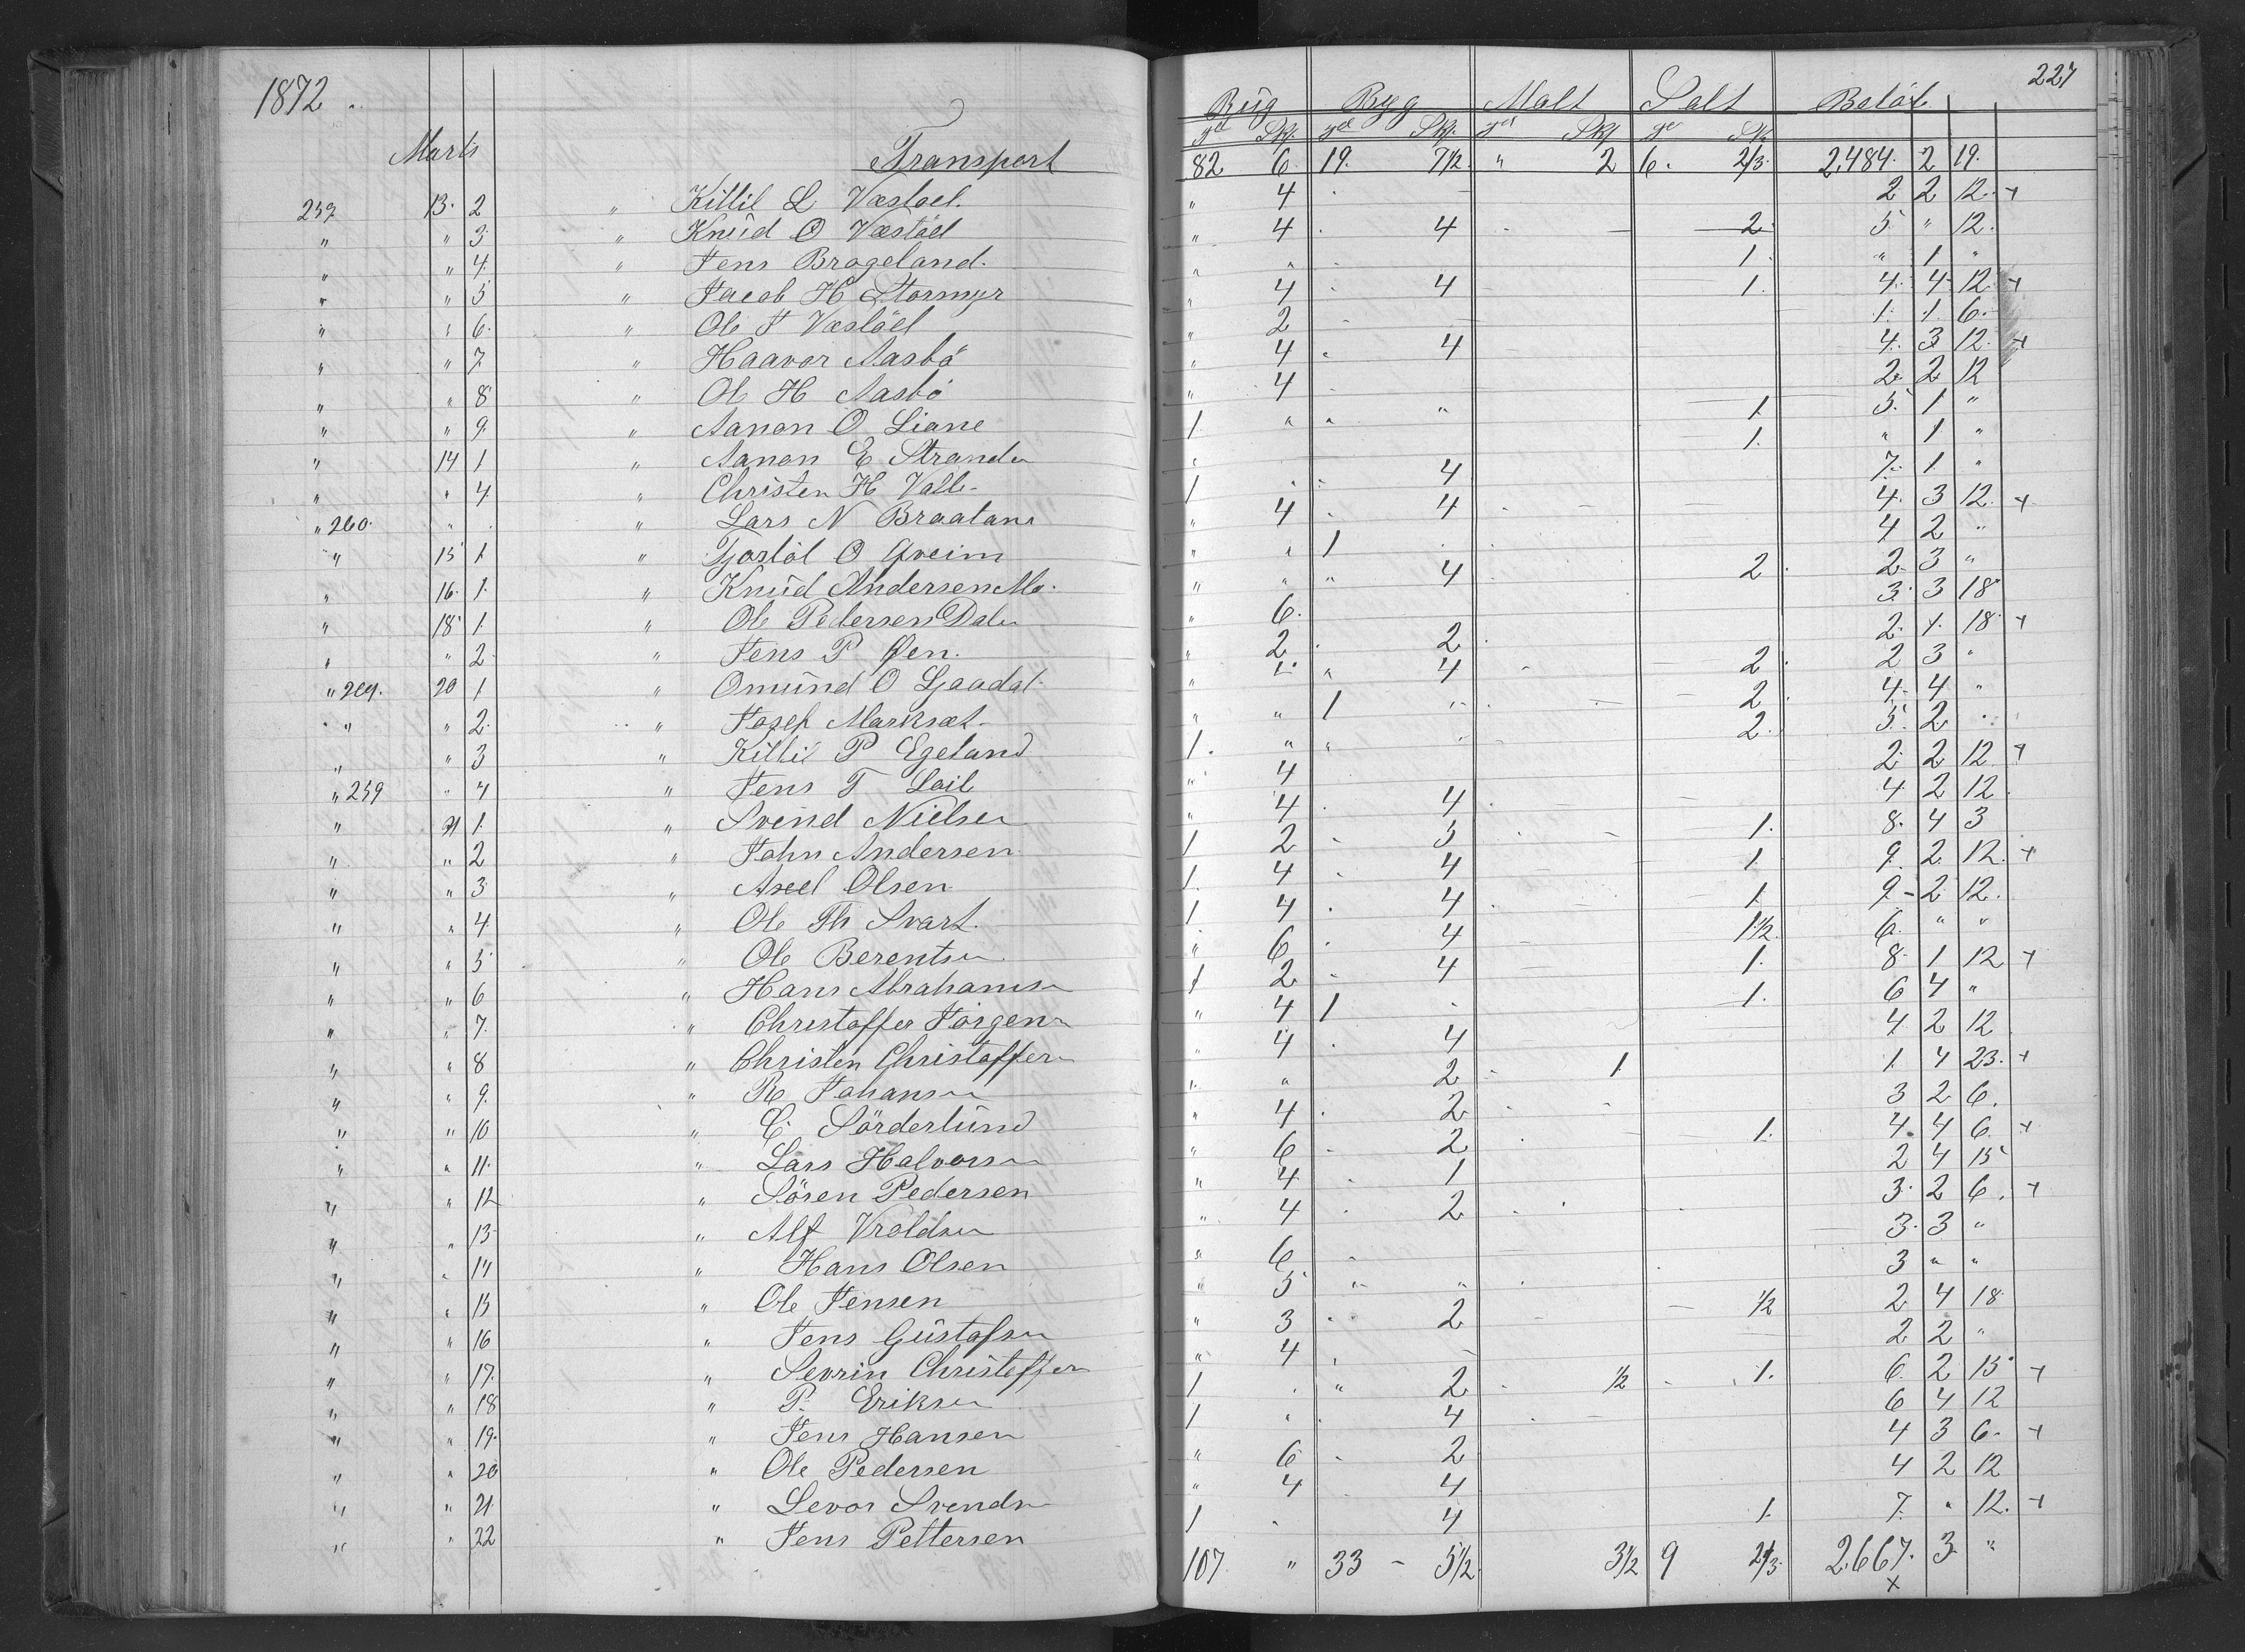 1872
227
Rüg Byg Malt Salt Beløb
Marts Transport 82 6. 19. 7½ " 2 6. 2/3 2,484. 2 19.
259 13. 2 " Kittil L Væstøel. " 4 2 2 12. +
" " 3 " Knüd O Væstøel " 4 4 2 5 " 12.
" " 4 " Jens Brageland. " " 1. " 1 "
" " 5 " Jacob H Stormyr " 4 4 1. 4. 4 12 +
" " 6. " Ole J Væstøel " 2 1. 1. 6.
" " 7 " Haavor Aasbö " 4 4 4. 3 12. +
" " 8 " Ole H Aasbö " 4 2. 2 12
" " 9. " Aanon O Liane 1 " " " 1. 5. 1 "
" 14 1 " Aanon E Strande 1. " 1. "
" " 4 " Christen H Valle 1 4 7. 1 "
" 260. " " Lars N Braatane " 4 4 4. 3 12. +
" 15 1 " Tjostöl O Qveim " " 1 4 2 "
" 16. 1. " Knüd Andersen Mo. " " " 4 2 2 3 "
" 18 1. " Ole Pedersen Dale " 6. 3. 3 18
" " 2 " Jens P Øen. " 2 2 2. 1. 18. +
" 264. 20 1 " Omünd O Ljaadal " " " 4 2 2 3 "
" " 2. " Josef Marksæt. " " 1 2 4. 4 "
" " 3 " Kittil P Egeland 1. " " 2. 5. 2
" 259 " 4 " Jens T Lail " 4 2 2 12 +
" 21 1. " Svend Nielsen " 4 4 4 2 12.
" " 2 " John Andersen 1 2 5 1. 8. 4 3
" " 3 " Axel Olsen 1. 4 4 1. 9. 2 12. +
" " 4. " Ole Th Svart. 1 4 4 1. 9 - 2 12.
" " 5 " Ole Berentsen " 6 4 1½. 6. " "
" " 6 " Hans Abrahamsen 1 2 4 1. 8. 1 12 +
" " 7. " Christoffer Jörgensen " 4 1 1. 6 4 "
" " 8 " Christen Christoffersen " 4 4 4 2 12
" " 9. " R Johansen " " 2 1 1. 4 23. +
" " 10 " C. Sörderlünd " 4 2 3 2 6.
" " 11. " Lars Halvorsen " 6 2 1. 4. 4 6. +
" " 12 " Sören Pedersen " 4 1 2 4 15
" " 13 " Alf Vroldsen " 4 2 3. 2 6. +
" " 14 " Hans Olsen " 6 3. 3 "
" " 15 " Ole Jensen " 5 " " 3 " "
" " 16 " Jens Güstafsen " 3 2 ½ 2 4 18
" " 17. " Sevrin Christoffersen " 4 2 2 "
" " 18 " P. Eriksen 1 " 2 ½ 1. 6. 2 15 +
" " 19. " Jens Hansen 1 4 6 4 12
" " 20 " Ole Pedersen " 6 2 4 3 6. +
" " 21. " Levor Svendsen " 4 4 4 2 12
" " 22 " Jens Pettersen 1 4 1. 7. " 12. +
107 " 33 - 5½ 3½ 9 2/3 2,667. 3 "
x